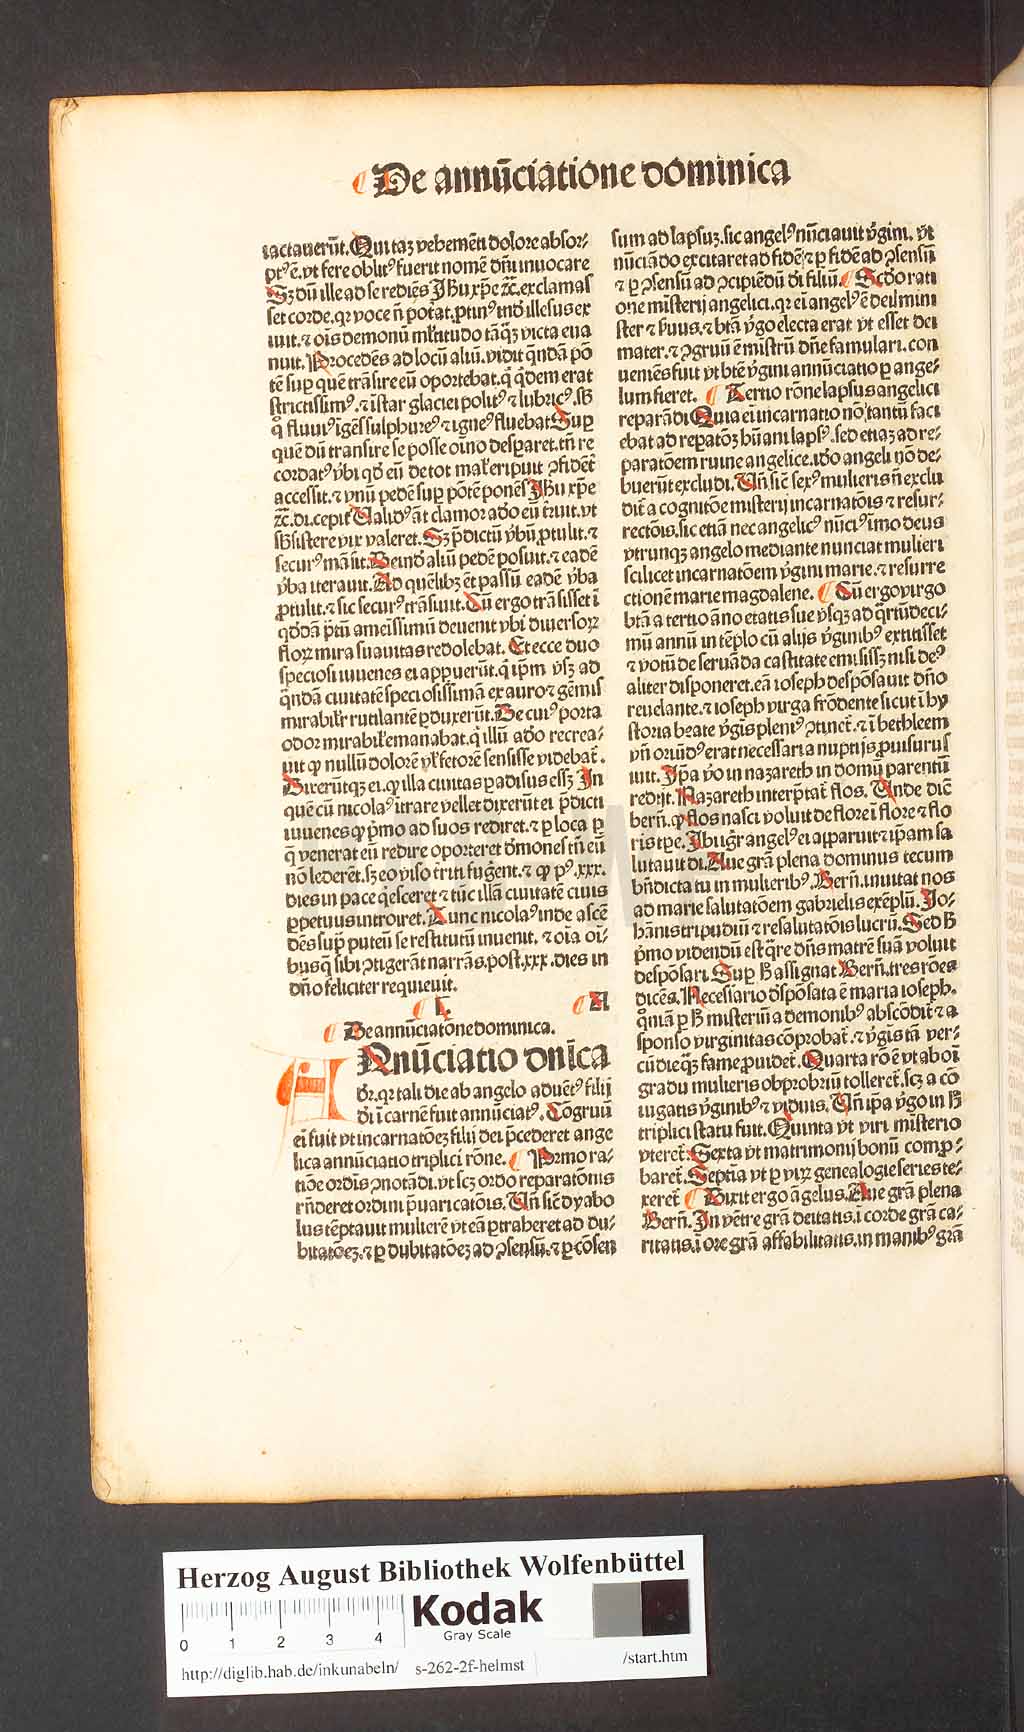 De annūciatione dominica
iactauerūt. Qui taʒ vehemēti dolore absor⸗
ptꝰ ē. vt fere oblitꝰ fuerit nomē dn̄i inuocare
Sʒ dū ille ad se rediēs Jħu xp̄e ⁊c̄. exclamas
set corde. qꝛ voce n̄ poťat. ꝓtinꝰ tn̄d illesus ex
iuit. ⁊ oīs demonū mľtitudo tāqʒ victa eua
nuit. Procedēs ad locū aliū. vidit q̄ndā pō
tē suꝑ quē trāsire eū oportebat. q̇ q̇dem erat
strictissimꝰ. ⁊ īstar glaciei politꝰ ⁊ lubricꝰ. sb̄
q̊ fluuiꝰ igēs sulphureꝰ ⁊ igneꝰ fluebat Suꝑ
quē dū transire se posse oīno desꝑaret. tn̄ re
cordatꝰ v̄bi qd̓ eū de tot mal̓ eripuit ꝯfidēť
accessit. ⁊ vnū pedē suꝑ pōtē ponēs Jħu xp̄e
⁊c̄. di. cepit Ualidꝰ āt clamor adeo eū t̓ruit. vt
sb̄sistere vix valeret. Sʒ p̄dictū v̄bū ꝓtulit. ⁊
securꝰ māsit. Deinde aliū pedē posuit. ⁊ eadē
v̄ba iterauit. Ad quēlibʒ ēt passū eadē v̄ba
ꝓtulit. ⁊ sic securꝰ trāsiuit. Cū ergo trāsisset ī
qd̓dā p̄tū amēissimū deuenit vbi diuersoꝝ
floꝝ mira suauitas redolebat. Et ecce duo
speciosi iuuenes ei apparuerūt. q̇ ip̄m vsqʒ ad
q̄ndā ciuitatē speciosissimā ex auro ⁊ gēmis
mirabil̓r rutilantē ꝑduxerūt. De cuiꝰ porta
odor mirabil̓ emanabat. q̇ illū adeo recrea⸗
uit ꝙ nullū dolorē vl̓ fetorē sensisse videbať.
Dixerūtqʒ ei. ꝙ illa ciuitas padisus essʒ Jn
quē cū nicolaꝰ ītrare vellet dixerūt ei p̄dicti
iuuenes ꝙ p̓mo ad suos rediret. ⁊ ꝑ loca ꝑ
q̄ venerat eū redire oporteret demones tn̄ eū
nō lederēt. sʒ eo viso triti fuger̄nt. ⁊ ꝙ pꝰ. xxx.
dies in pace q̇esceret ⁊ tūc illā ciuitatē ciuis
ꝑpetuus introiret. Tunc nicolaꝰ inde ascē
dēs suꝑ puteū se restitutū inuenit. ⁊ oīa oī⸗
busq̄ sibi ꝯtigerāt narrās. post. xxx. dies in
dn̄o feliciter requieuit.
L. A
De annūciatōne dominica.
Anūciatio dn̄ica
dr̄. qꝛ tali die ab angelo aduēꝰ filij
di ī carnē fuit annūciatꝰ. Cōgruū
ei fuit vt incarnatōeʒ filij dei p̄cederet ange
lica annūciatio triplici rōne. Primo ra⸗
tiōe ordīs ꝯnotādi. vt scʒ ordo reparatōnis
rn̄deret ordini p̄uaricatōis. Un̄ sic̄ dyabo
lus tēptauit mulierē vt eā ꝑtraheret ad du⸗
bitatōeʒ. ⁊ ꝑ dubitatōeʒ ad ꝯsensū. ⁊ ꝑ cōsen
sum ad lapsuʒ. sic angelꝰ nūciauit v̓gini. vt
nūciādo excitaret ad fidē ⁊ ꝑ fidē ad ꝯsensū
⁊ ꝑ ꝯsensū ad ꝯcipiēdū di filiū. Scd̓o rati
one misterij angelici. qꝛ ei angelꝰ ē dei mini
ster ⁊ ẜuus. ⁊ btā v̓go electa erat vt esset dei
mater. ⁊ ꝯgruū ē mīstrū dn̄e famulari. con
ueniēs fuit vt btē v̓gini annūciatio ꝑ ange⸗
lum fieret. Tertio rōne lapsus angelici
reparādi Quia ei incarnatio nō tantū faci
ebat ad repatōʒ hūani lapsꝰ. sed etiaʒ ad re⸗
paratōem ruine angelice. ideo angeli nō de⸗
buerūt excludi. Un̄ sic̄ sexꝰ mulieris n̄ exclu
dit̄ a cognitōe misterij incarnatōis ⁊ resur⸗
rectōis. sic etiā nec angelicꝰ nūciꝰ īmo deus
vtrunqʒ angelo mediante nunciat mulieri
scilicet incarnatōem v̓gini marie. ⁊ resurre
ctionē marie magdalene. Cū ergo virgo
btā a tertio āno etatis sue vsqʒ ad q̇rtūdeci⸗
mū annū in tēplo cū alijs v̓ginibꝰ extitisset
⁊ votū de seruāda castitate emisissʒ nisi deꝰ
aliter disponeret. eā ioseph despōsauit dn̄o
reuelante. ⁊ ioseph virga frōdente sicut ī hy
storia beate v̓gīs pleniꝰ ꝯtineť. ⁊ ī bethleem
vn̄ oriūdꝰ erat necessaria nuptijs ꝓuisurus
iuit. Jpa v̓o in nazareth in domū parentū
redijt. Nazareth interp̄tať flos. Unde dic̄
bern̄. ꝙ flos nasci voluit de flore ī flore ⁊ flo
ris tꝑe. Jbi ḡ angelꝰ ei apparuit ⁊ ip̄am sa
lutauit di. Aue grā plena dominus tecum
bn̄dicta tu in mulieribꝰ. Bern̄. inuitat nos
ad marie salutatōem gabrielis exēplū. Jo⸗
hānis tripudiū ⁊ resalutatōis lucrū. Sed ħ
p̓mo videndū est q̄re dn̄s matrē suā voluit
despōsari. Suꝑ ħ assignat Bern̄. tres rōes
dicēs. Necessario dispōsata ē maria ioseph.
qm̄iā ꝑ ħ misteriū a demonibꝰ abscōdiť ⁊ a
sponso virginitas cōprobať. ⁊ v̓gīs tā ver⸗
cūdie qʒ fame ꝓuideť. Quarta rō ē vt ab oī
gradu mulieris obprobriū tolleret̄. scʒ a cō
iugatis v̓ginibꝰ ⁊ viduis. Un̄ ip̄a v̓go in ħ
triplici statu fuit. Quinta vt viri misterio
vtereť Sexta vt matrimonij bonū comꝓ⸗
bareť. Septīa vt ꝑ viꝝ genealogie series te⸗
xereť Dixit ergo āgelus. Aue grā plena
Bern̄. Jn vētre grā deitatis. ī corde grā ca⸗
ritatis. ī ore grā affabilitatis. in manibꝰ grā
Herzog August Bibliothek Wolfenbüttel
0 1 2 3 4
Kodak
Gray Scale
http://diglib.hab.de/inkunabeln/ s-262-2f-helmst /start.htm